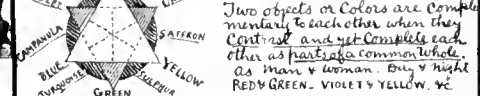 CAMPANULA
BLUE
TURQUOISE
GREEN
SULPHUR
YELLOW
SAFFRON
Two objects or Colors are Comple
mentary to each other when they
Contrast and yet Complete each
other as parts of a common whole.
as Man & Woman. Day & Night
RED & GREEN - VIOLET & YELLOW. &c